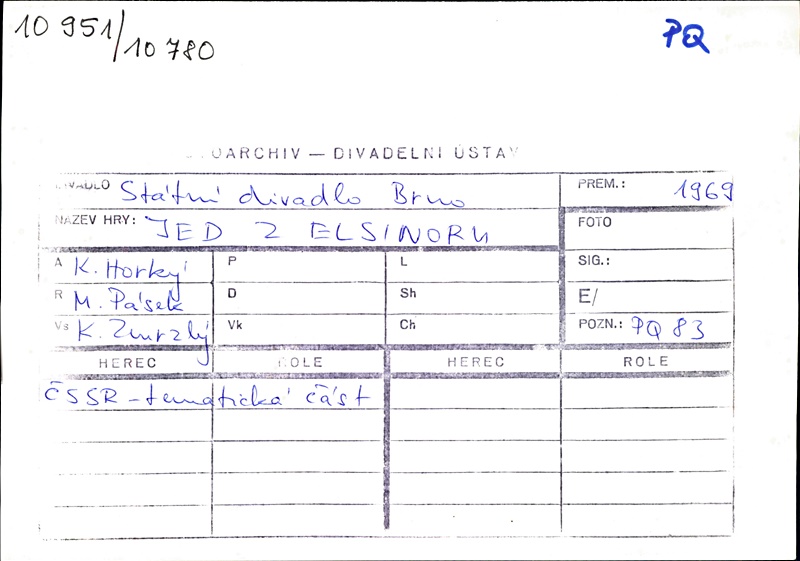 10 951/10 780
PQ
OARCHIV — DIVADELNÍ ÚSTAV
IVADLO Státní divadlo Brno PREM.: 1969
NÁZEV HRY: JED Z ELSINORU FOTO
A K. Horký P L SIG.:
R M. Pásek D Sh E/
Vs K. Zmrzlý Vk Ch POZN.: PQ 83
HEREC ROLE HEREC ROLE
ČSSR – tematická část